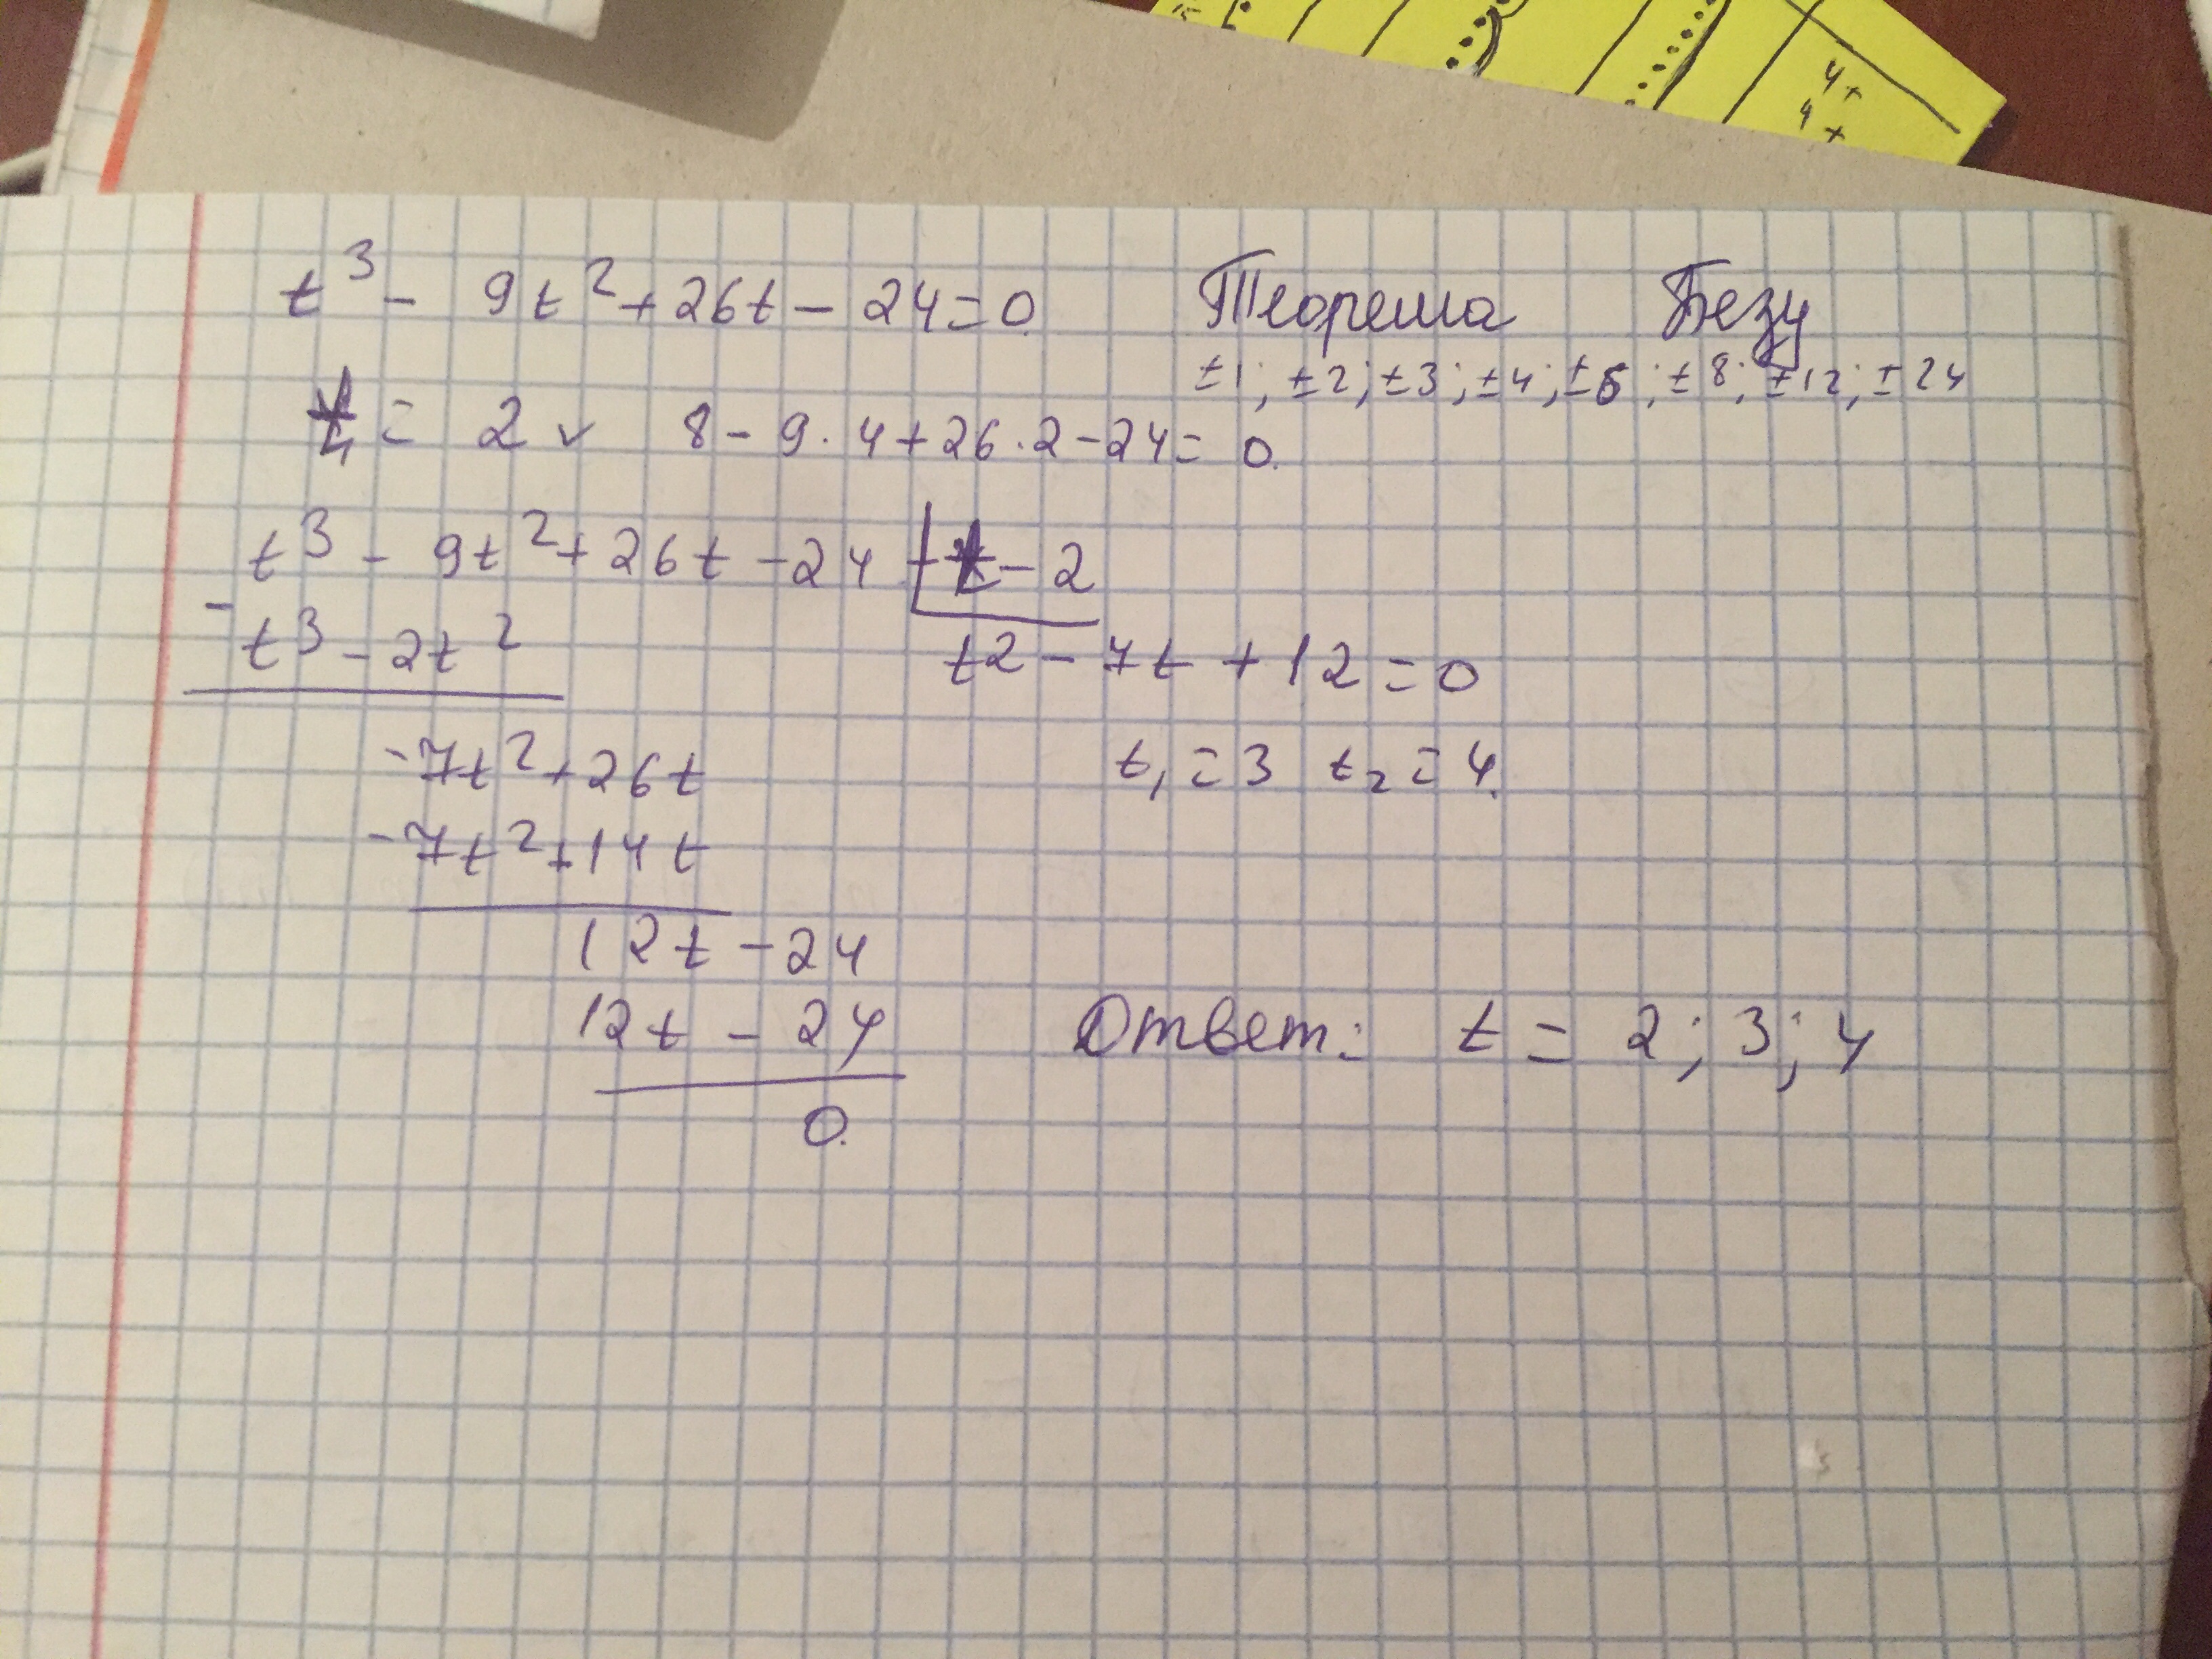 t³ - 9t² + 26t - 24 = 0 Теорема Безу
±1; ±2; ±3; ±4; ±6; ±8; ±12; ±24
t = 2 ✓ 8 - 9·4 + 26·2 - 24 = 0.
t³ - 9t² + 26t - 24 | t - 2
- t³ - 2t² t2 - 7t + 12 = 0
-7t² + 26t t₁ = 3 t₂ = 4.
-7t² + 14t
12t - 24
12t - 24 Ответ: t = 2; 3; 4
0.
4+
4+